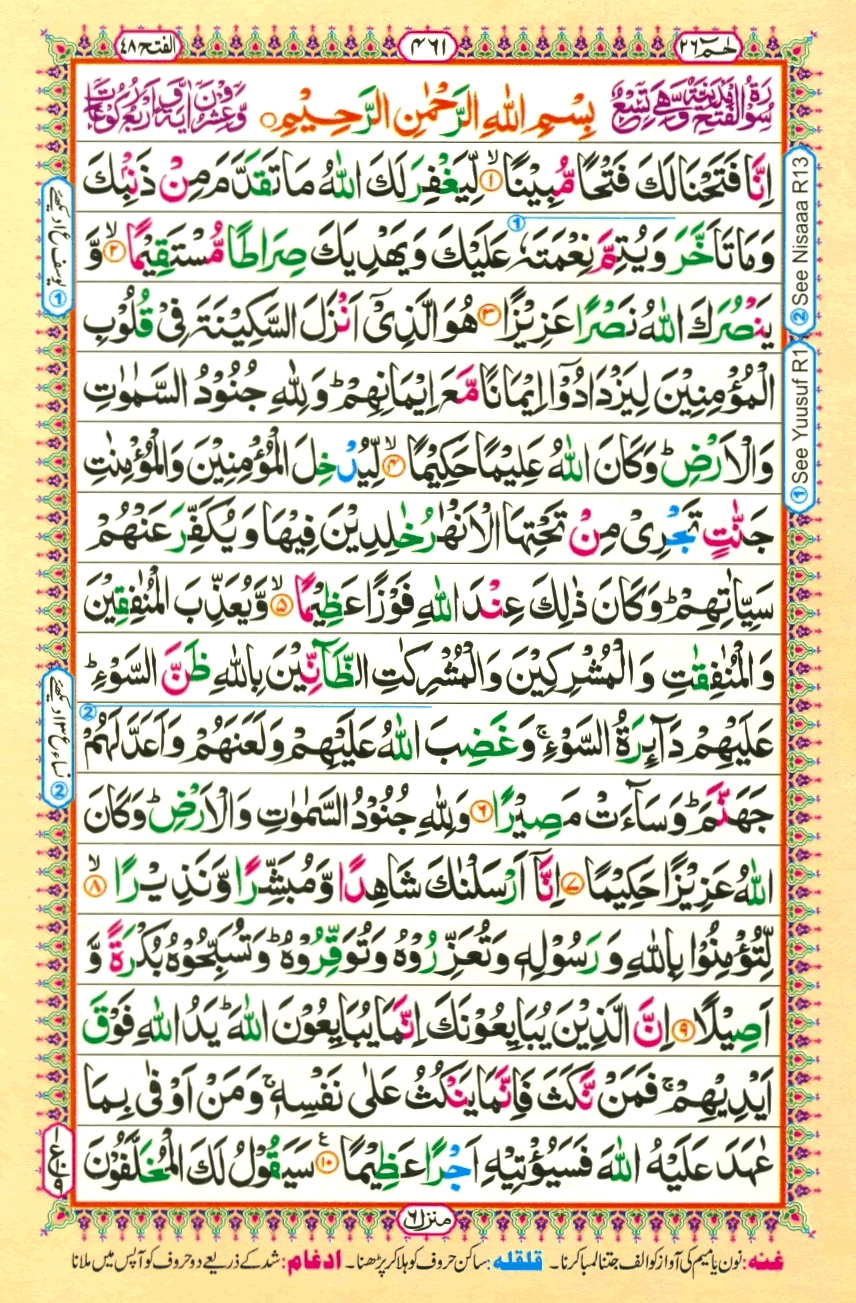 حٰمٓ ٢٦
٤٦١
الفتح ٤٨
سُوْرَةُ الْفَتْحِ مَدَنِيَّةٌ وَّهِيَ تِسْعٌ
بِسْمِ اللهِ الرَّحْمٰنِ الرَّحِيْمِ
وَّعِشْرُوْنَ اٰيَةً وَّاَرْبَعُ رُكُوْعَاتٍ
اِنَّا فَتَحْنَا لَكَ فَتْحًا مُّبِيْنًا ۙ۱ لِّيَغْفِرَ لَكَ اللهُ مَا تَقَدَّمَ مِنْ ذَنْۢبِكَ
وَمَا تَاَخَّرَ وَيُتِمَّ نِعْمَتَهٗ عَلَيْكَ وَيَهْدِيَكَ صِرَاطًا مُّسْتَقِيْمًا ۙ۲ وَّ
يَنْصُرَكَ اللهُ نَصْرًا عَزِيْزًا ۳ هُوَ الَّذِيْٓ اَنْزَلَ السَّكِيْنَةَ فِيْ قُلُوْبِ
الْمُؤْمِنِيْنَ لِيَزْدَادُوْٓا اِيْمَانًا مَّعَ اِيْمَانِهِمْ ؕ وَلِلّٰهِ جُنُوْدُ السَّمٰوٰتِ
وَالْاَرْضِ ؕ وَكَانَ اللهُ عَلِيْمًا حَكِيْمًا ۙ۴ لِّيُدْخِلَ الْمُؤْمِنِيْنَ وَالْمُؤْمِنٰتِ
جَنّٰتٍ تَجْرِيْ مِنْ تَحْتِهَا الْاَنْهٰرُ خٰلِدِيْنَ فِيْهَا وَيُكَفِّرَ عَنْهُمْ
سَيِّاٰتِهِمْ ؕ وَكَانَ ذٰلِكَ عِنْدَ اللهِ فَوْزًا عَظِيْمًا ۙ۵ وَّيُعَذِّبَ الْمُنٰفِقِيْنَ
وَالْمُنٰفِقٰتِ وَالْمُشْرِكِيْنَ وَالْمُشْرِكٰتِ الظَّآنِّيْنَ بِاللهِ ظَنَّ السَّوْءِ ؕ
عَلَيْهِمْ دَآئِرَةُ السَّوْءِ ۚ وَغَضِبَ اللهُ عَلَيْهِمْ وَلَعَنَهُمْ وَاَعَدَّ لَهُمْ
جَهَنَّمَ ؕ وَسَآءَتْ مَصِيْرًا ۶ وَلِلّٰهِ جُنُوْدُ السَّمٰوٰتِ وَالْاَرْضِ ؕ وَكَانَ
اللهُ عَزِيْزًا حَكِيْمًا ۷ اِنَّآ اَرْسَلْنٰكَ شَاهِدًا وَّمُبَشِّرًا وَّنَذِيْرًا ۙ۸
لِّتُؤْمِنُوْا بِاللهِ وَرَسُوْلِهٖ وَتُعَزِّرُوْهُ وَتُوَقِّرُوْهُ ؕ وَتُسَبِّحُوْهُ بُكْرَةً وَّ
اَصِيْلًا ۹ اِنَّ الَّذِيْنَ يُبَايِعُوْنَكَ اِنَّمَا يُبَايِعُوْنَ اللهَ ؕ يَدُ اللهِ فَوْقَ
اَيْدِيْهِمْ ۚ فَمَنْ نَّكَثَ فَاِنَّمَا يَنْكُثُ عَلٰى نَفْسِهٖ ۚ وَمَنْ اَوْفٰى بِمَا
عٰهَدَ عَلَيْهُ اللهَ فَسَيُؤْتِيْهِ اَجْرًا عَظِيْمًا ۱۰ سَيَقُوْلُ لَكَ الْمُخَلَّفُوْنَ
② See Nisaaa R13
① See Yuusuf R1
منزل ٦
غنه: نون یا میم کی آواز کو الف جتنا لمبا کرنا۔ قلقله: ساکن حروف کو ہلا کر پڑھنا۔ ادغام: شد کے ذریعے دو حروف کو آپس میں ملانا